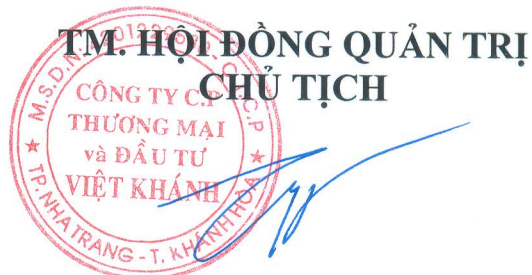 TM. HỘI ĐỒNG QUẢN TRỊ
CHỦ TỊCH
CÔNG TY C.P
THƯƠNG MẠI
và ĐẦU TƯ
VIỆT KHÁNH
TP. NHA TRANG - T. KHÁNH HÒA